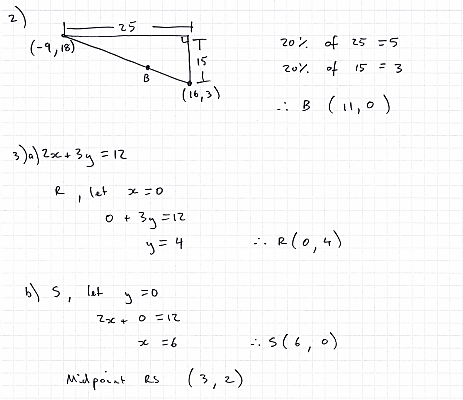 2)
25
(-9, 18)
15
B
(16, 3)
20% of 25 = 5
20% of 15 = 3
∴ B (11, 0)
3) a) 2x + 3y = 12
R, let x = 0
0 + 3y = 12
y = 4 ∴ R(0, 4)
b) S, let y = 0
2x + 0 = 12
x = 6 ∴ S(6, 0)
Midpoint RS (3, 2)